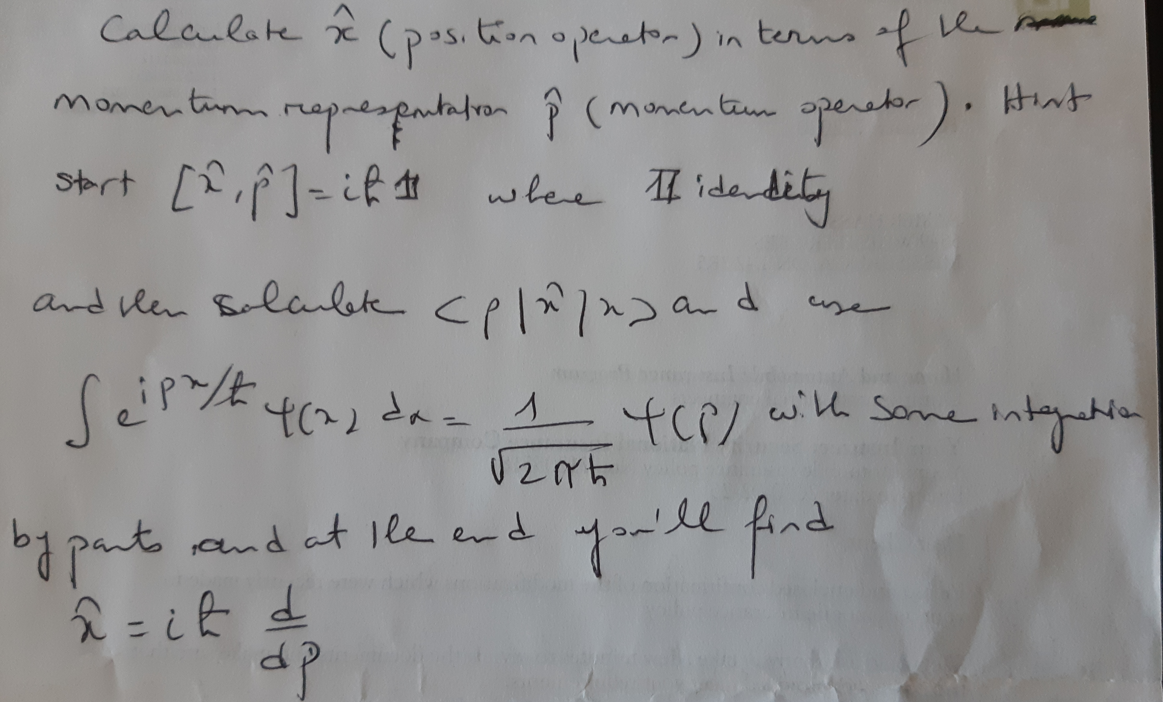 Calculate x̂ (position operator) in terms of the
momentum representation p̂ (momentum operator). Hint
start [x̂, p̂] = iħ 𝟙 where 𝟙 identity
and then calculate <p|x̂|x> and use
∫ e^{ipx/ħ} ψ(x) dx = 1/√(2πħ) ψ(p) with some integration
by parts, and at the end you'll find
x̂ = iħ d/dp